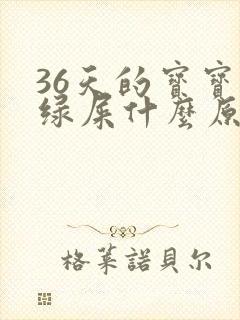 36天的寶寶
绿屎什麼原
格莱諾貝尔